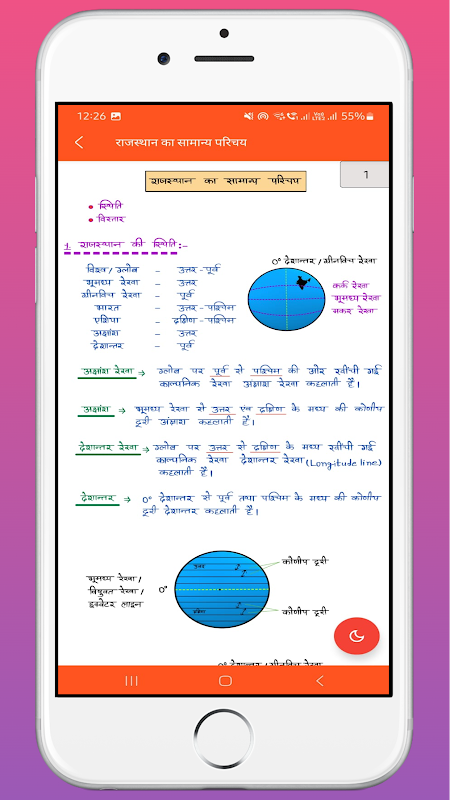 12:26
55%
राजस्थान का सामान्य परिचय
1
राजस्थान का सामान्य परिचय
स्थिति
विस्तार
1. राजस्थान की स्थिति :-
0° देशान्तर / ग्रीनविच रेखा
विश्व / ग्लोब - उत्तर-पूर्व
भूमध्य रेखा - उत्तर
ग्रीनविच रेखा - पूर्व
भारत - उत्तर-पश्चिम
एशिया - दक्षिण-पश्चिम
अक्षांश - उत्तर
देशान्तर - पूर्व
कर्क रेखा
भूमध्य रेखा
मकर रेखा
अक्षांश रेखा → ग्लोब पर पूर्व से पश्चिम की ओर खींची गई
काल्पनिक रेखा अक्षांश रेखा कहलाती है।
अक्षांश → भूमध्य रेखा से उत्तर एवं दक्षिण के मध्य की कोणीय
दूरी अंक्षाश कहलाती है।
देशान्तर रेखा → ग्लोब पर उत्तर से दक्षिण के मध्य खींची गई
काल्पनिक रेखा देशान्तर रेखा (Longitude line)
कहलाती है।
देशान्तर → 0° देशान्तर से पूर्व तथा पश्चिम के मध्य की कोणीय
दूरी देशान्तर कहलाती है।
भूमध्य रेखा /
विषुवत रेखा /
इक्वेटर लाइन
0°
उत्तर
दक्षिण
कोणीय दूरी
कोणीय दूरी
0° देशान्तर / ग्रीनविच रेखा